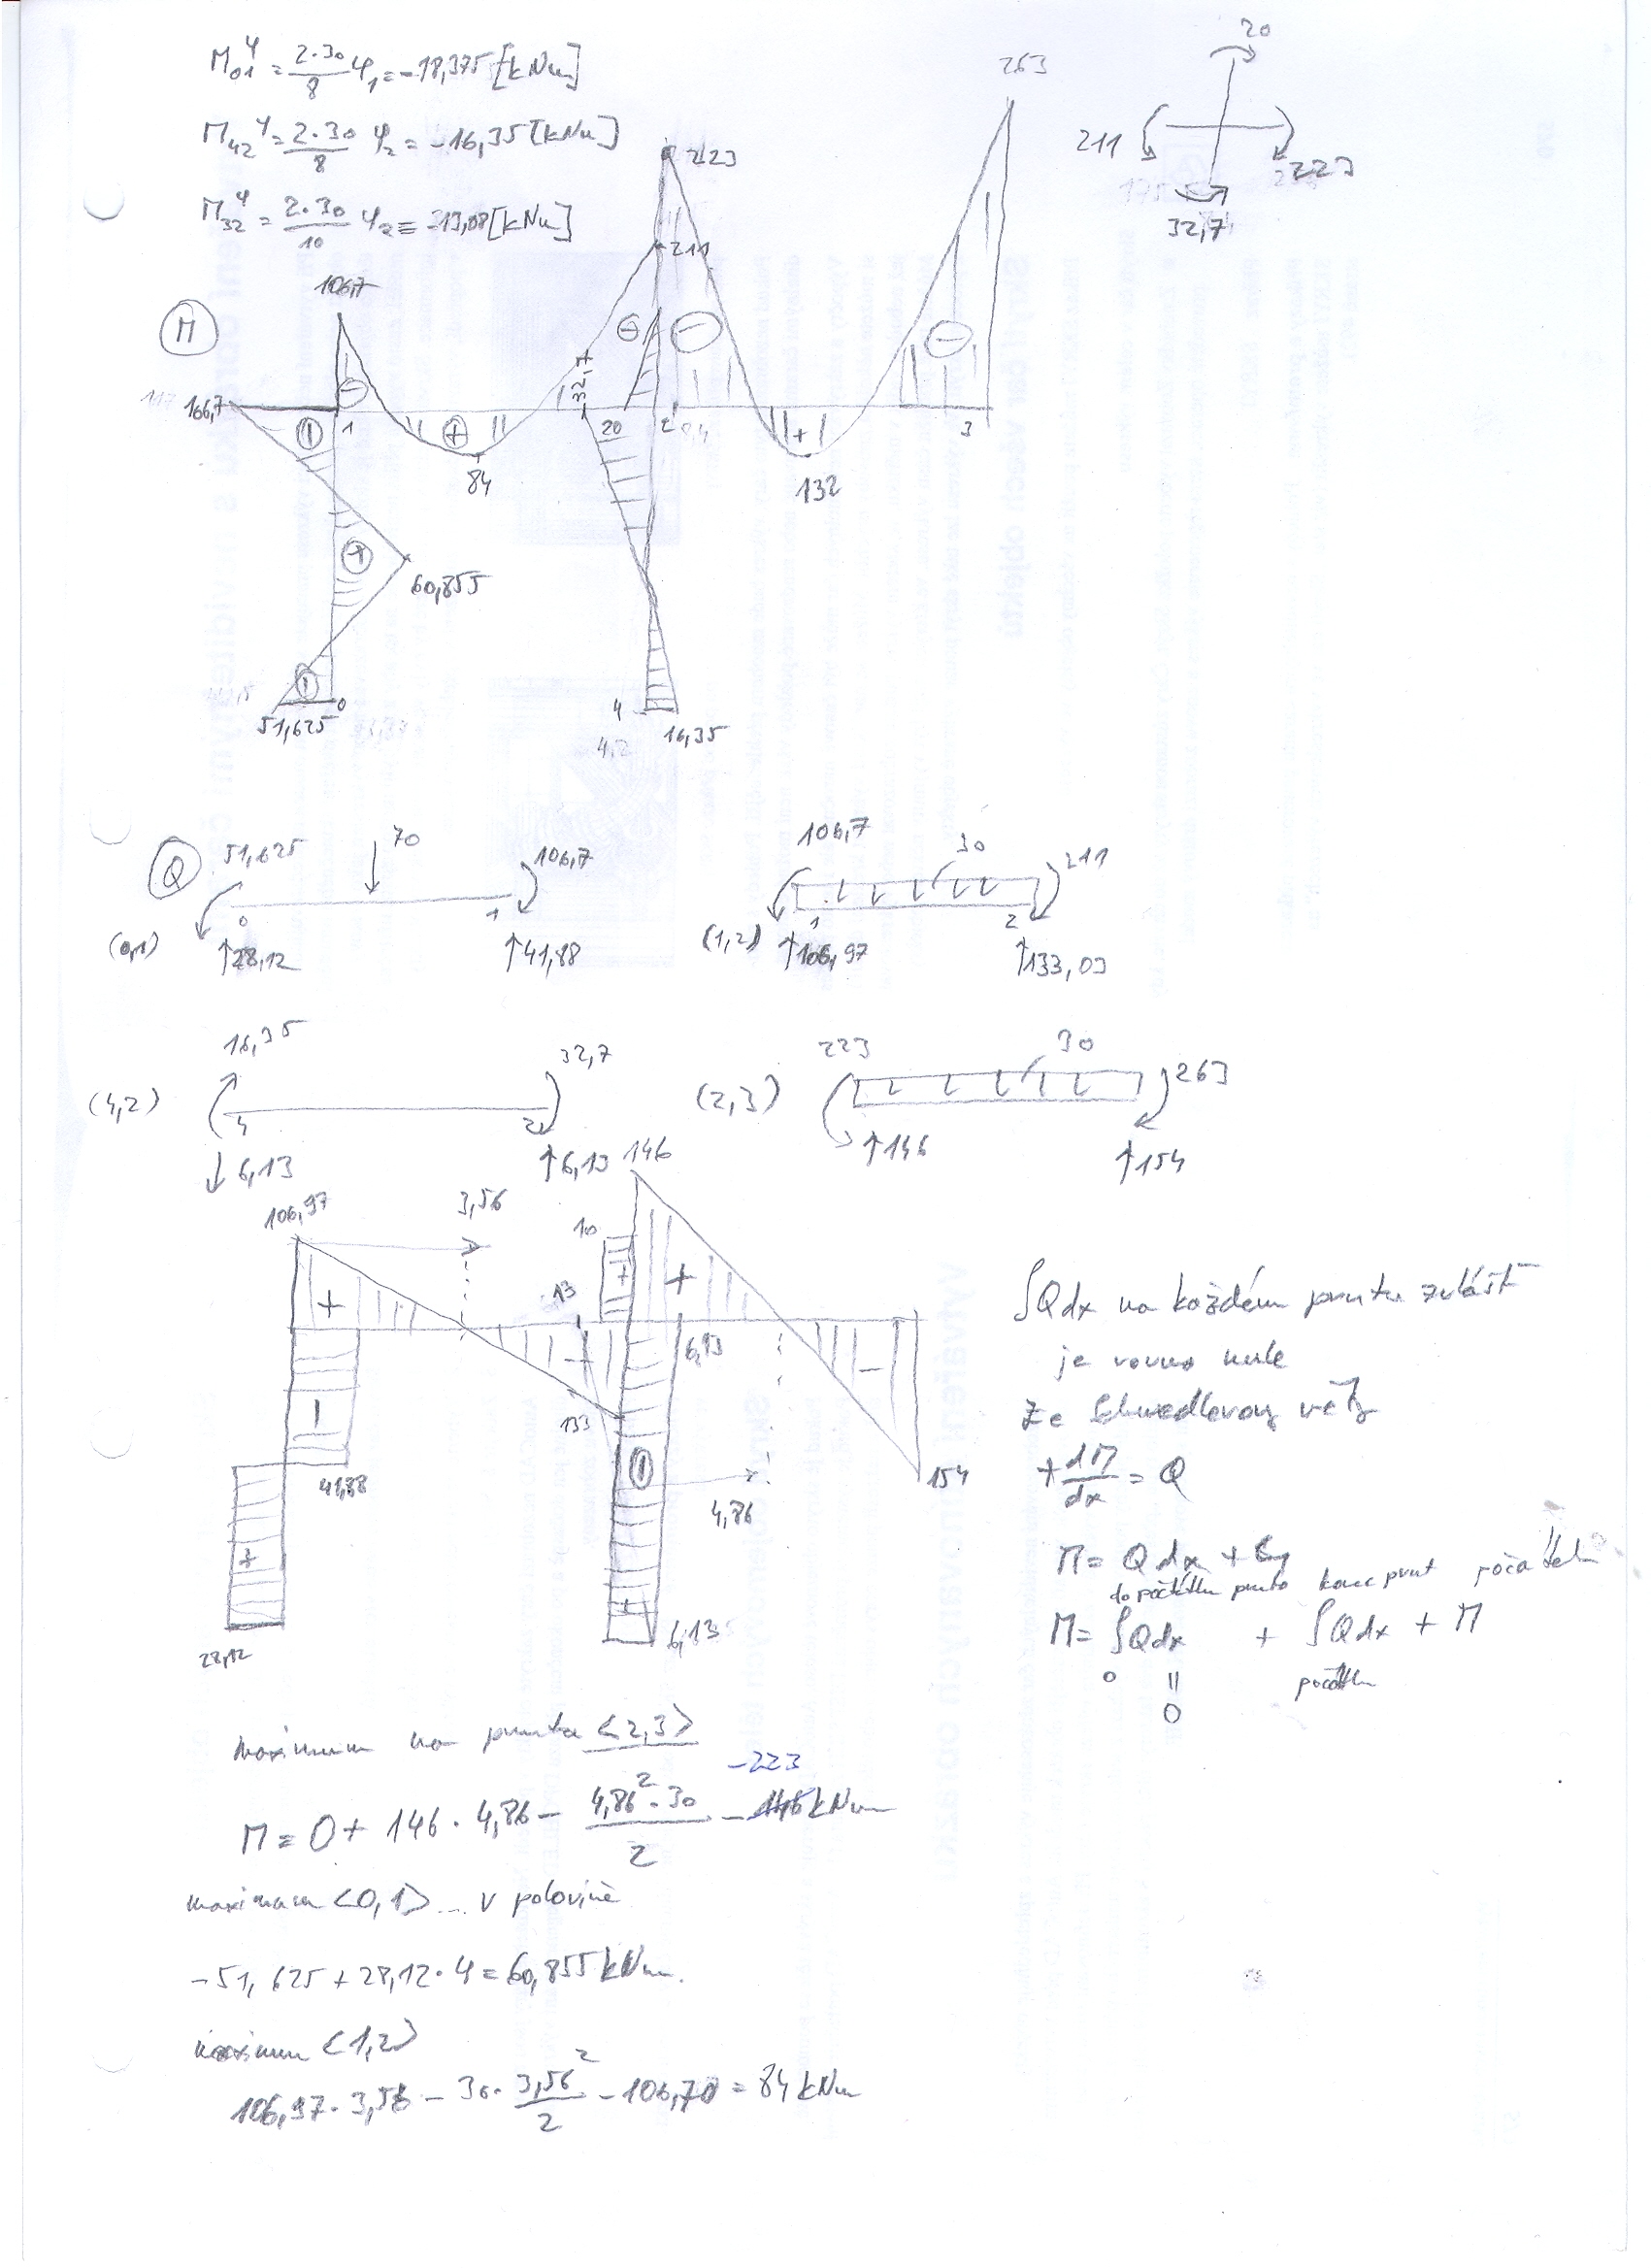 M₀₁^φ = 2·30/8 φ₁ = -18,375 [kNm]
M₄₂^φ = 2·30/8 φ₂ = -16,35 [kNm]
M₃₂^φ = 2·30/10 φ₂ = -13,08 [kNm]
20
211
223
32,7
M
263
223
211
106,7
166,7
-
-
1
+
84
32,7
20
2
-
+
132
-
3
+
60,855
-
0
51,625
4
16,35
Q
51,625
70
106,7
0
1
(0,1)
↑28,12
↑41,88
106,7
30
211
1
2
(1,2)
↑106,97
↑133,03
16,35
32,7
(4,2)
4
2
↓6,13
↑6,13
223
30
263
(2,3)
↑146
↑154
106,97
3,56
146
10
+
13
+
+
-
6,13
-
133
-
-
154
41,88
4,86
+
+
28,12
6,13
∫Q dx na každém prutu zvlášť
je rovno nule
Ze Schwedlerovy věty
+ dM/dx = Q
M = Q dx + C₁
do počátku prutu konec prut
M = ∫Q dx + ∫Q dx + M
0 = 0 počátku
maximum na prutu <2,3>
-223
M = 0 + 146 · 4,86 - 4,86²·30/2 - kNm
maximum <0,1> ... v polovině
-51,625 + 28,12·4 = 60,855 kNm.
maximum <1,2>
106,97·3,56 - 30·3,56²/2 - 106,70 = 84 kNm